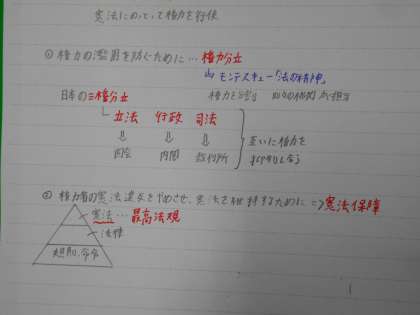 憲法にのっとって権力を行使
① 権力の濫用を防ぐために… 権力分立
モンテスキュー「法の精神」
日本の三権分立 権力を 別々の機関が担当
立法 行政 司法
⇩ ⇩ ⇩ 互いに権力を
国会 内閣 裁判所
② 権力者の憲法違反をやめさせ、憲法を維持するために ⇒ 憲法保障
憲法… 最高法規
法律
規則、命令